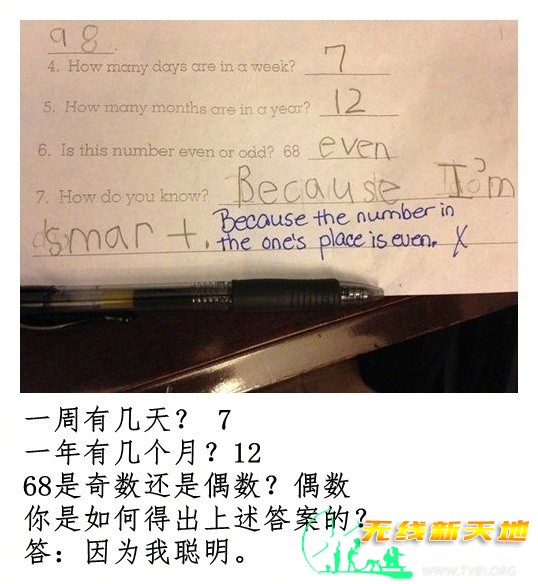 98.
4. How many days are in a week? 7
5. How many months are in a year? 12
6. Is this number even or odd? 68 even
7. How do you know? Because I'm
smart.
Because the number in
the one's place is even. X
一周有几天? 7
一年有几个月?12
68是奇数还是偶数?偶数
你是如何得出上述答案的?
答:因为我聪明。
无线新天地
WWW.TVBJ.ORG